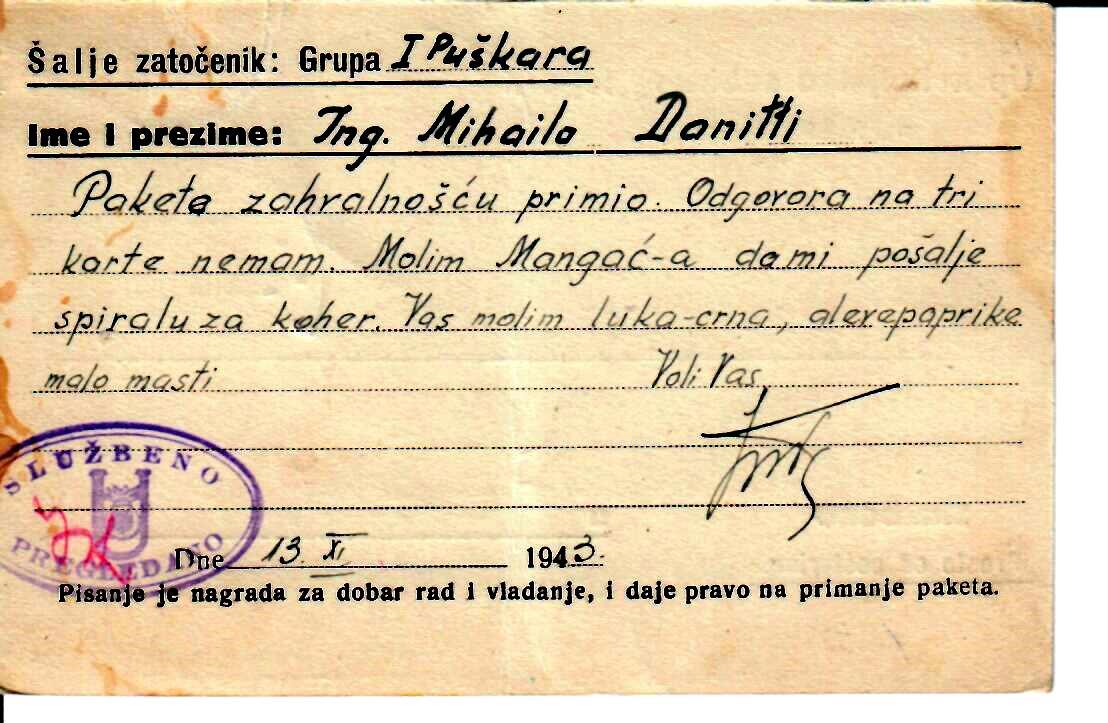 Šalje zatočenik: Grupa I Puškara
Ime i prezime: Ing. Mihailo Danitti
Paketa zahralnošću primio. Odgovora na tri
karte nemam. Molim Mangać-a da mi pošalje
spiralu za koher. Vas molim luka-crna, alevepaprike
malo masti Voli Vas
SLUŽBENO
PREGLEDANO
Dne 13 XI 1943.
Pisanje je nagrada za dobar rad i vladanje, i daje pravo na primanje paketa.